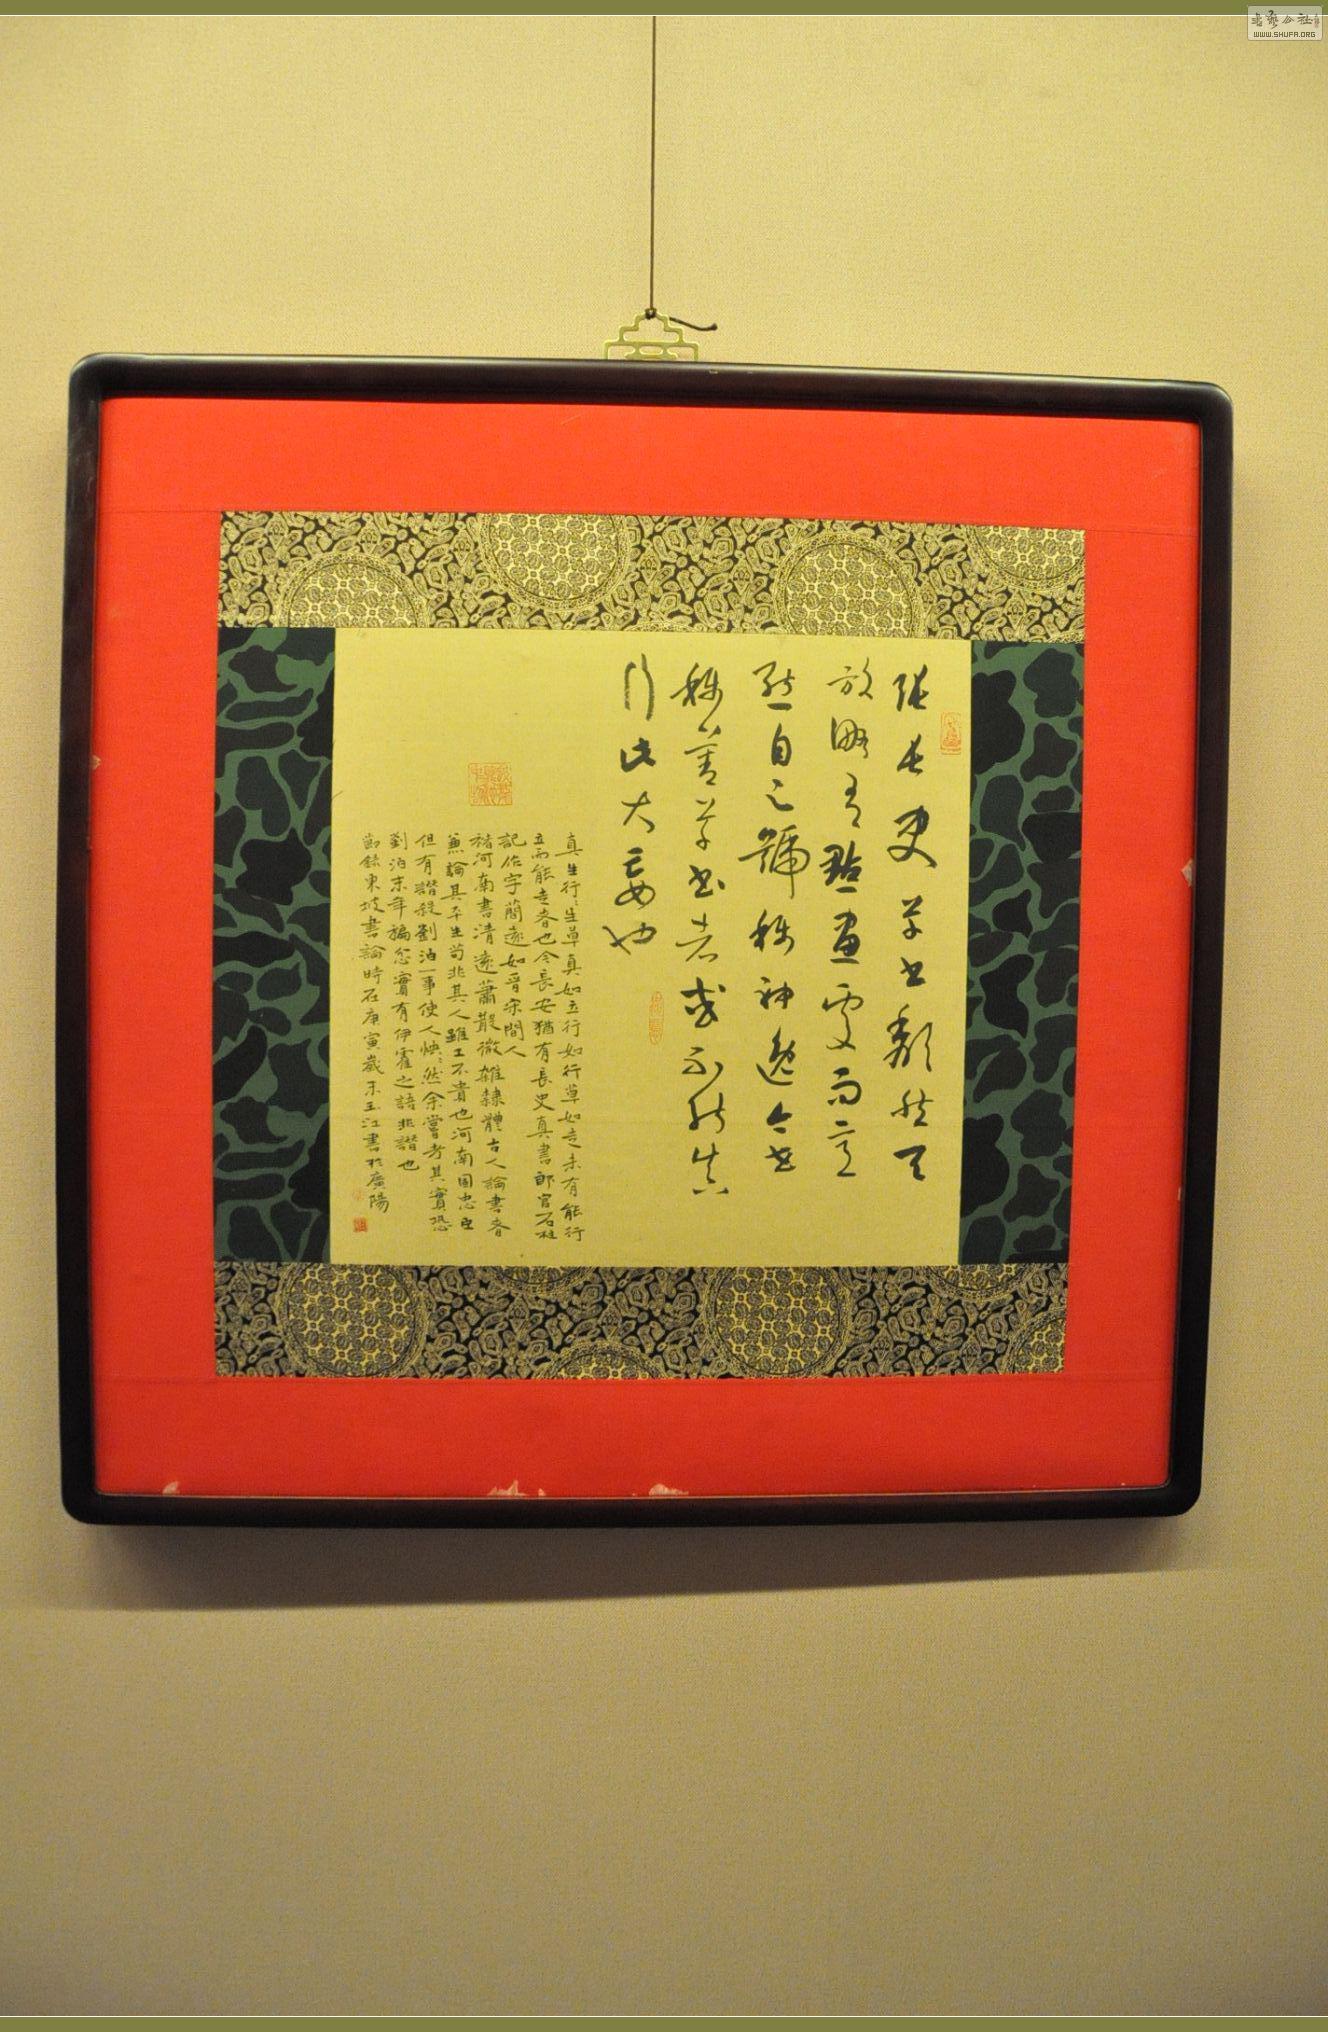 張長史草書頹然天
放略有點畫處而意
態自足號稱神逸今世
稱善草書者或不能真
行此大妄也
真生行行生草真如立行如行草如走未有能行
立而能走者也今長安猶有長史真書郎官石柱
記作字簡遠如晉宋間人
褚河南書清遠蕭散微雜隸體古人論書者
兼論其平生苟非其人雖工不貴也河南固忠臣
但有譖殺劉洎一事使人怏怏然余嘗考其實恐
劉洎末年褊忿實有伊霍之語非譖也
節錄東坡書論時在庚寅歲末玉江書於廣陽
書藝公社
WWW.SHUFA.ORG